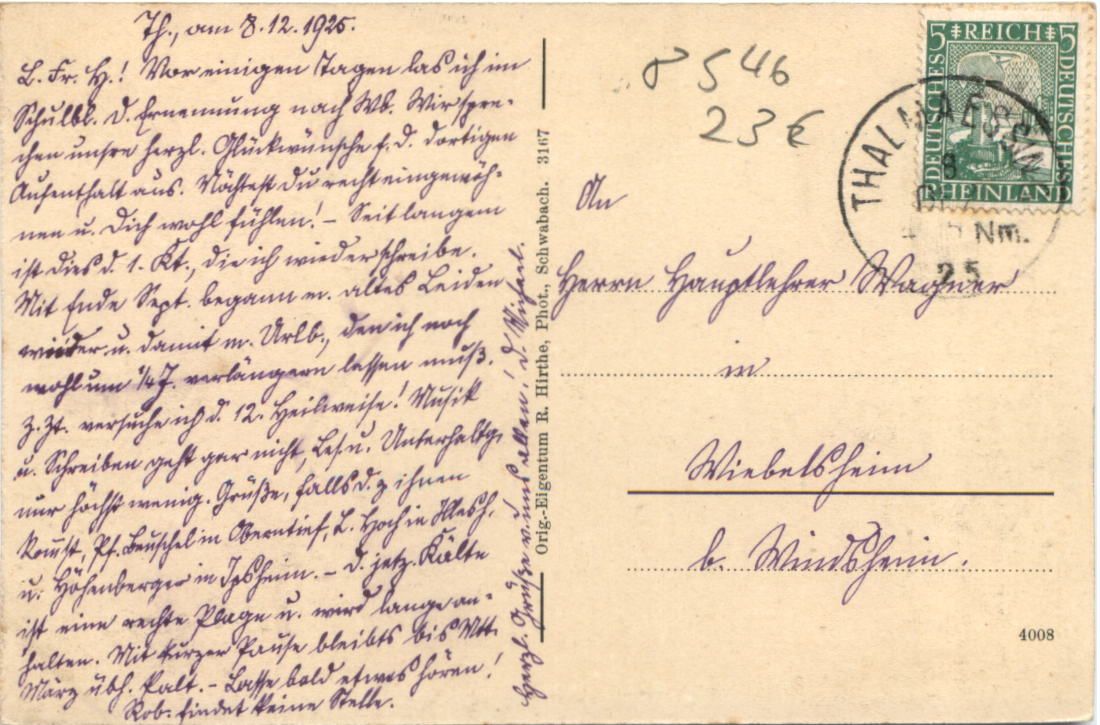 Th., am 8.12.1925.
L. Fr. H.! Vor einigen Tagen las ich im
Schulbl. d. Ernennung nach Wb. Wir spre-
chen unsre herzl. Glückwünsche f. d. dortigen
Aufenthalt aus. Möchtest Du recht eingewöh-
nen u. Dich wohl fühlen! – Seit langem
ist dies d. 1. Kt., die ich wieder schreibe.
Mit Ende Sept. begann m. altes Leiden
wieder u. damit m. Urlb., den ich noch
wohl um 1/4 J. verlängern lassen muß.
Z. Zt. versuche ich d. 12. Heilweise! Musik
u. Schreiben geht gar nicht, Les. u. Unterhaltg.
nur höchst wenig. Grüße, falls d. z. ihnen
kommst, Pf. Beuschel in Oberntief, L. Hoch in
u. Höhenberger in Ipsheim. – D. jetz. Kälte
ist eine rechte Plage u. wird lange an-
halten. Mit kurzer Pause bleibts bis Mtt.
März übh. kalt. – Lasse bald etwas hören!
Rob. findet keine Stelle.
Herzl. Grüße v. uns allen! D. Michael.
Orig.-Eigentum R. Hirthe, Phot., Schwabach. 3167
8546
23 €
5 REICH 5
DEUTSCHES
DEUTSCHES
RHEINLAND
THALMAESSING
8
Nm.
25
An
Herrn Hauptlehrer Wagner
in
Wiebelsheim
b. Windsheim.
4008